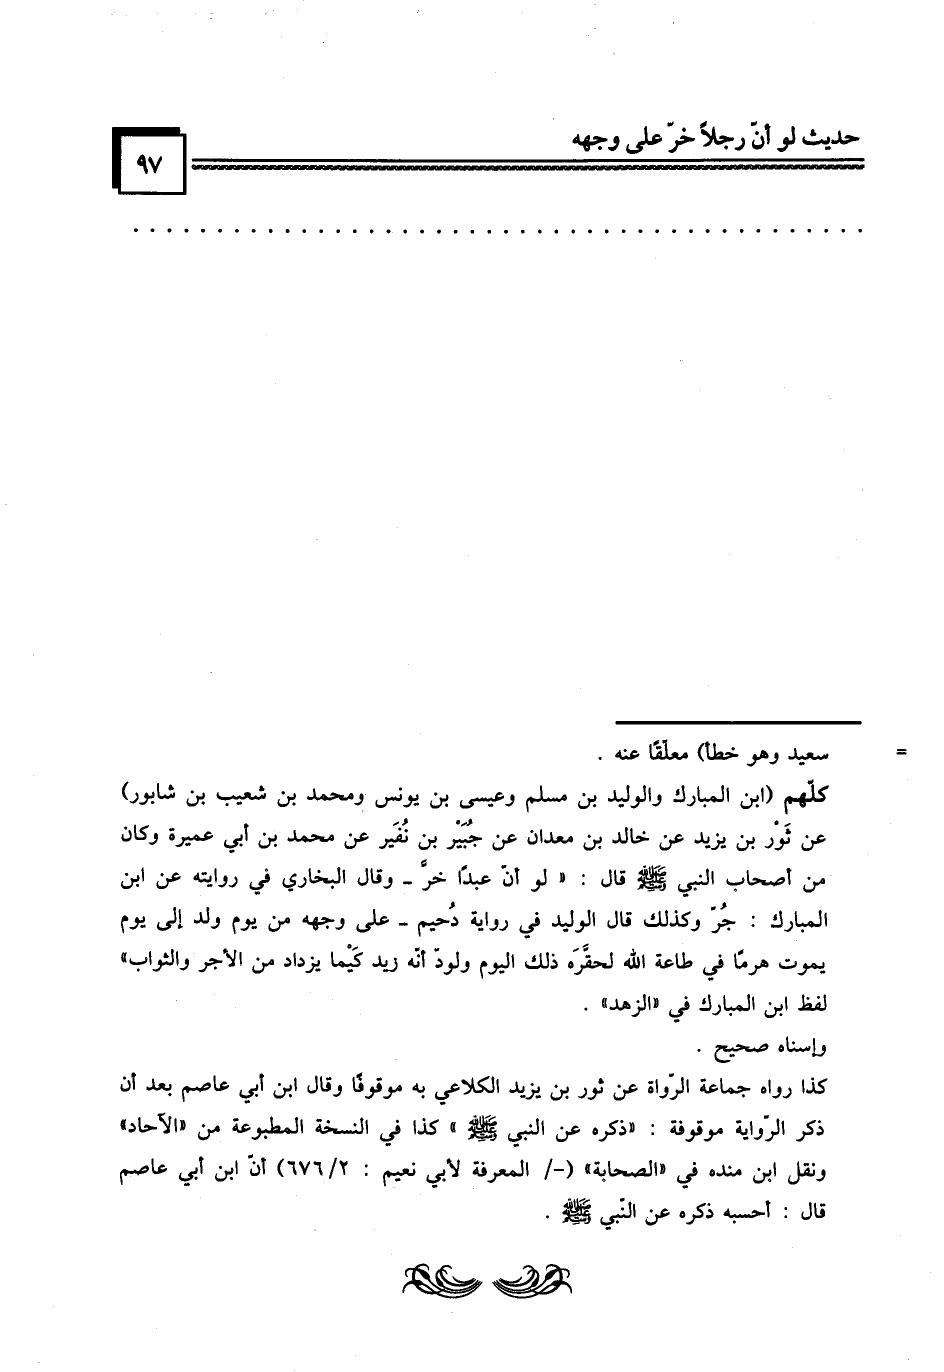 حديث لو أنّ رجلاً خرّ على وجهه
٩٧
. . . . . . . . . . . . . . . . . . . . . . . . . . . . . . . . . . . . . . . . . . . .
= سعيد وهو خطأ) معلّقًا عنه .
كلّهم (ابن المبارك والوليد بن مسلم وعيسى بن يونس ومحمد بن شعيب بن شابور)
عن ثَوْر بن يزيد عن خالد بن معدان عن جُبَيْر بن نُفَير عن محمد بن أبي عميرة وكان
من أصحاب النبي ﷺ قال : « لو أنّ عبدًا خرَّ ـ وقال البخاري في روايته عن ابن
المبارك : جُرّ وكذلك قال الوليد في رواية دُحيم ـ على وجهه من يوم ولد إلى يوم
يموت هرمًا في طاعة الله لحقَّرَه ذلك اليوم ولودّ أنّه زيد كَيْما يزداد من الأجر والثواب»
لفظ ابن المبارك في «الزهد» .
وإسناه صحيح .
كذا رواه جماعة الرّواة عن ثور بن يزيد الكلاعي به موقوفًا وقال ابن أبي عاصم بعد أن
ذكر الرّواية موقوفة : «ذكره عن النبي ﷺ » كذا في النسخة المطبوعة من «الآحاد»
ونقل ابن منده في «الصحابة» (–/ المعرفة لأبي نعيم : ٢/ ٦٧٦) أنّ ابن أبي عاصم
قال : أحسبه ذكره عن النّبي ﷺ .